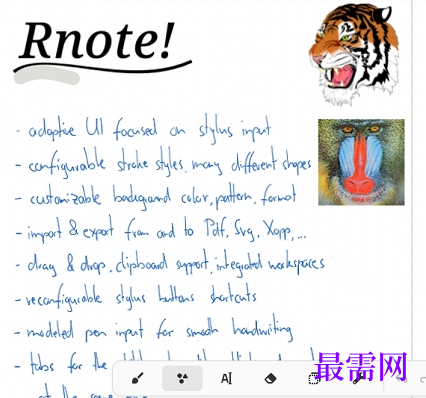 Rnote!
- adaptive UI focused on stylus input
- configurable stroke styles, many different shapes
- customizable background color, pattern, format
- import & export from and to Pdf, Svg, Xopp, ...
- drag & drop, clipboard support, integrated workspaces
- reconfigurable stylus buttons shortcuts
- modeled pen input for smooth handwriting
- tabs for the
最需网